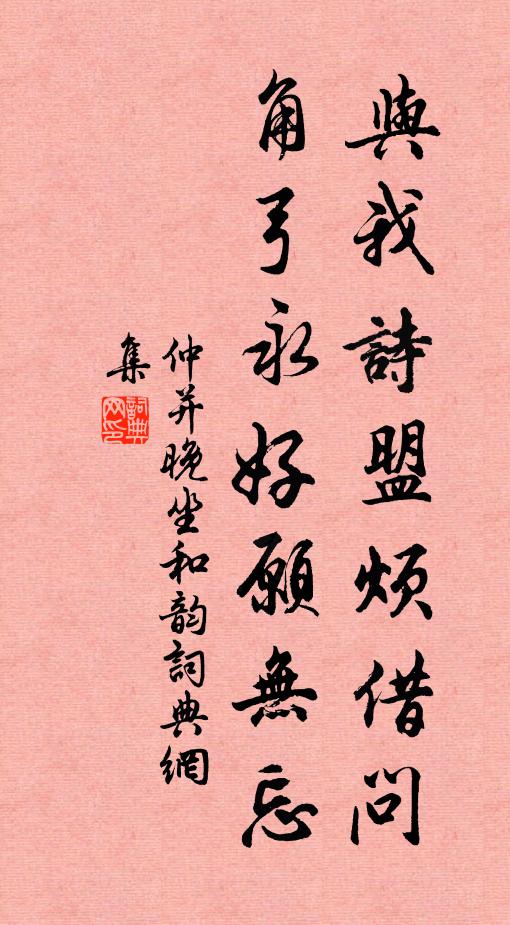 與我詩盟煩借問
角弓永好願無忘
仲并晚坐和韵詞典網
集
詞典网印